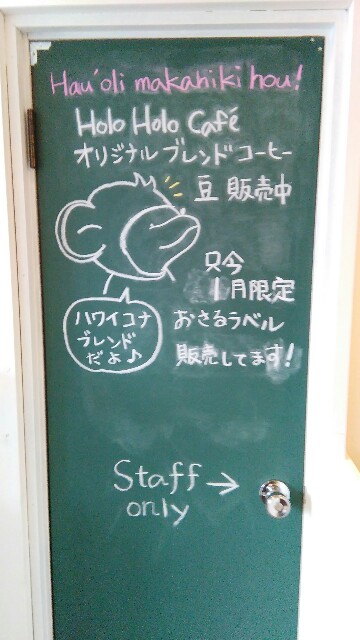 Hau'oli makahiki hou!
Holo Holo Café
オリジナルブレンドコーヒー
豆 販売中
只今
1月限定
おさるラベル
販売してます!
ハワイコナ
ブレンド
だよ♪
Staff →
only